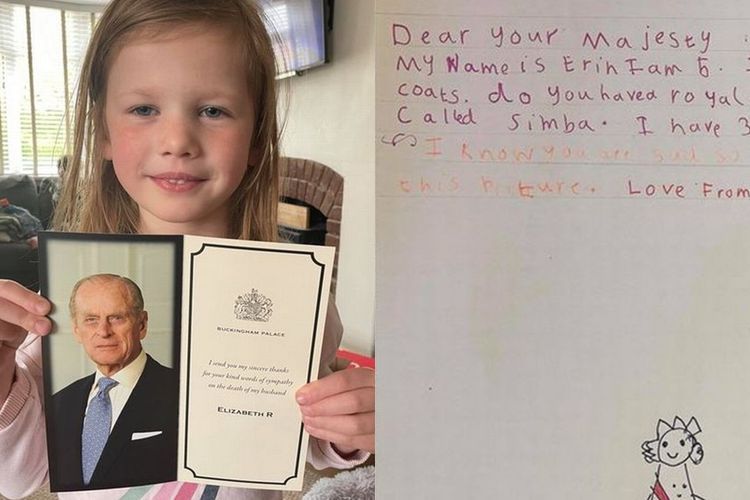 BUCKINGHAM PALACE
I send you my sincere thanks
for your kind words of sympathy
on the death of my husband
ELIZABETH R
Dear your Majesty
MY Name is Erin I am 5. I
coats. do you have a royal
Called Simba. I have 3
I know you are sad so
this picture. Love From